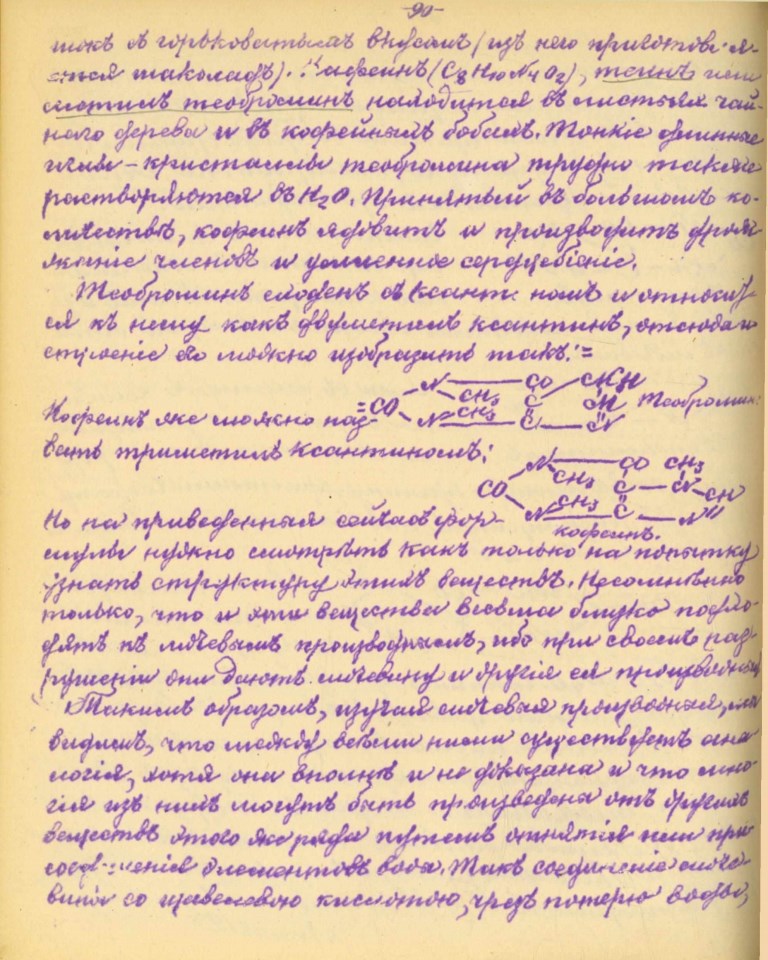 -90-
шокъ съ горьковатымъ вкусомъ (изъ него приготовля-
ется шаколадъ). Кафеинъ (C8H10N4O2), теинъ или
метилъ теоброминъ находится въ листьяхъ чай-
наго дерева и въ кофейныхъ бобахъ. Тонкіе длинные
иглы-кристаллы теобромина трудно также
растворяются въ H2O. Принятый въ большомъ ко-
личествѣ, кофеинъ ядовитъ и производитъ дрожаніе членовъ и усиленное сердцебіеніе.
Теоброминъ сходенъ съ ксантиномъ и относит-
ся къ нему какъ двуметилъ ксантинъ, отсюда и
строеніе его можно изобразить такъ:=
N CO CH NH
CH3 C
=CO CH Теоброминъ
Кофеинъ же можно наз- N CH3 C N
вать триметилъ ксантиномъ:
N CO CH3
CH3 C N
CO CH
CH3
Но на приведенныя сейчасъ фор- N C N
кофеинъ.
мулы нужно смотрѣть какъ только на попытку
узнать структуру этихъ веществъ. Несомнѣнно
только, что и эти вещества весьма близко подхо-
дятъ къ мочевымъ производнымъ, ибо при своемъ раз-
рушеніи они даютъ мочевину и другія ея производныя
Такимъ образомъ, изучая мочевыя производныя, мы
видимъ, что между всѣми ними существуетъ ана-
логія, хотя она вполнѣ и не доказана и что мно-
гія изъ нихъ могутъ быть произведена отъ другихъ
веществъ этого же ряда путемъ отнятія или при-
соединенія элементовъ воды. Такъ соединеніе моче-
вины со щавелевою кислотою, чрезъ потерю воды,